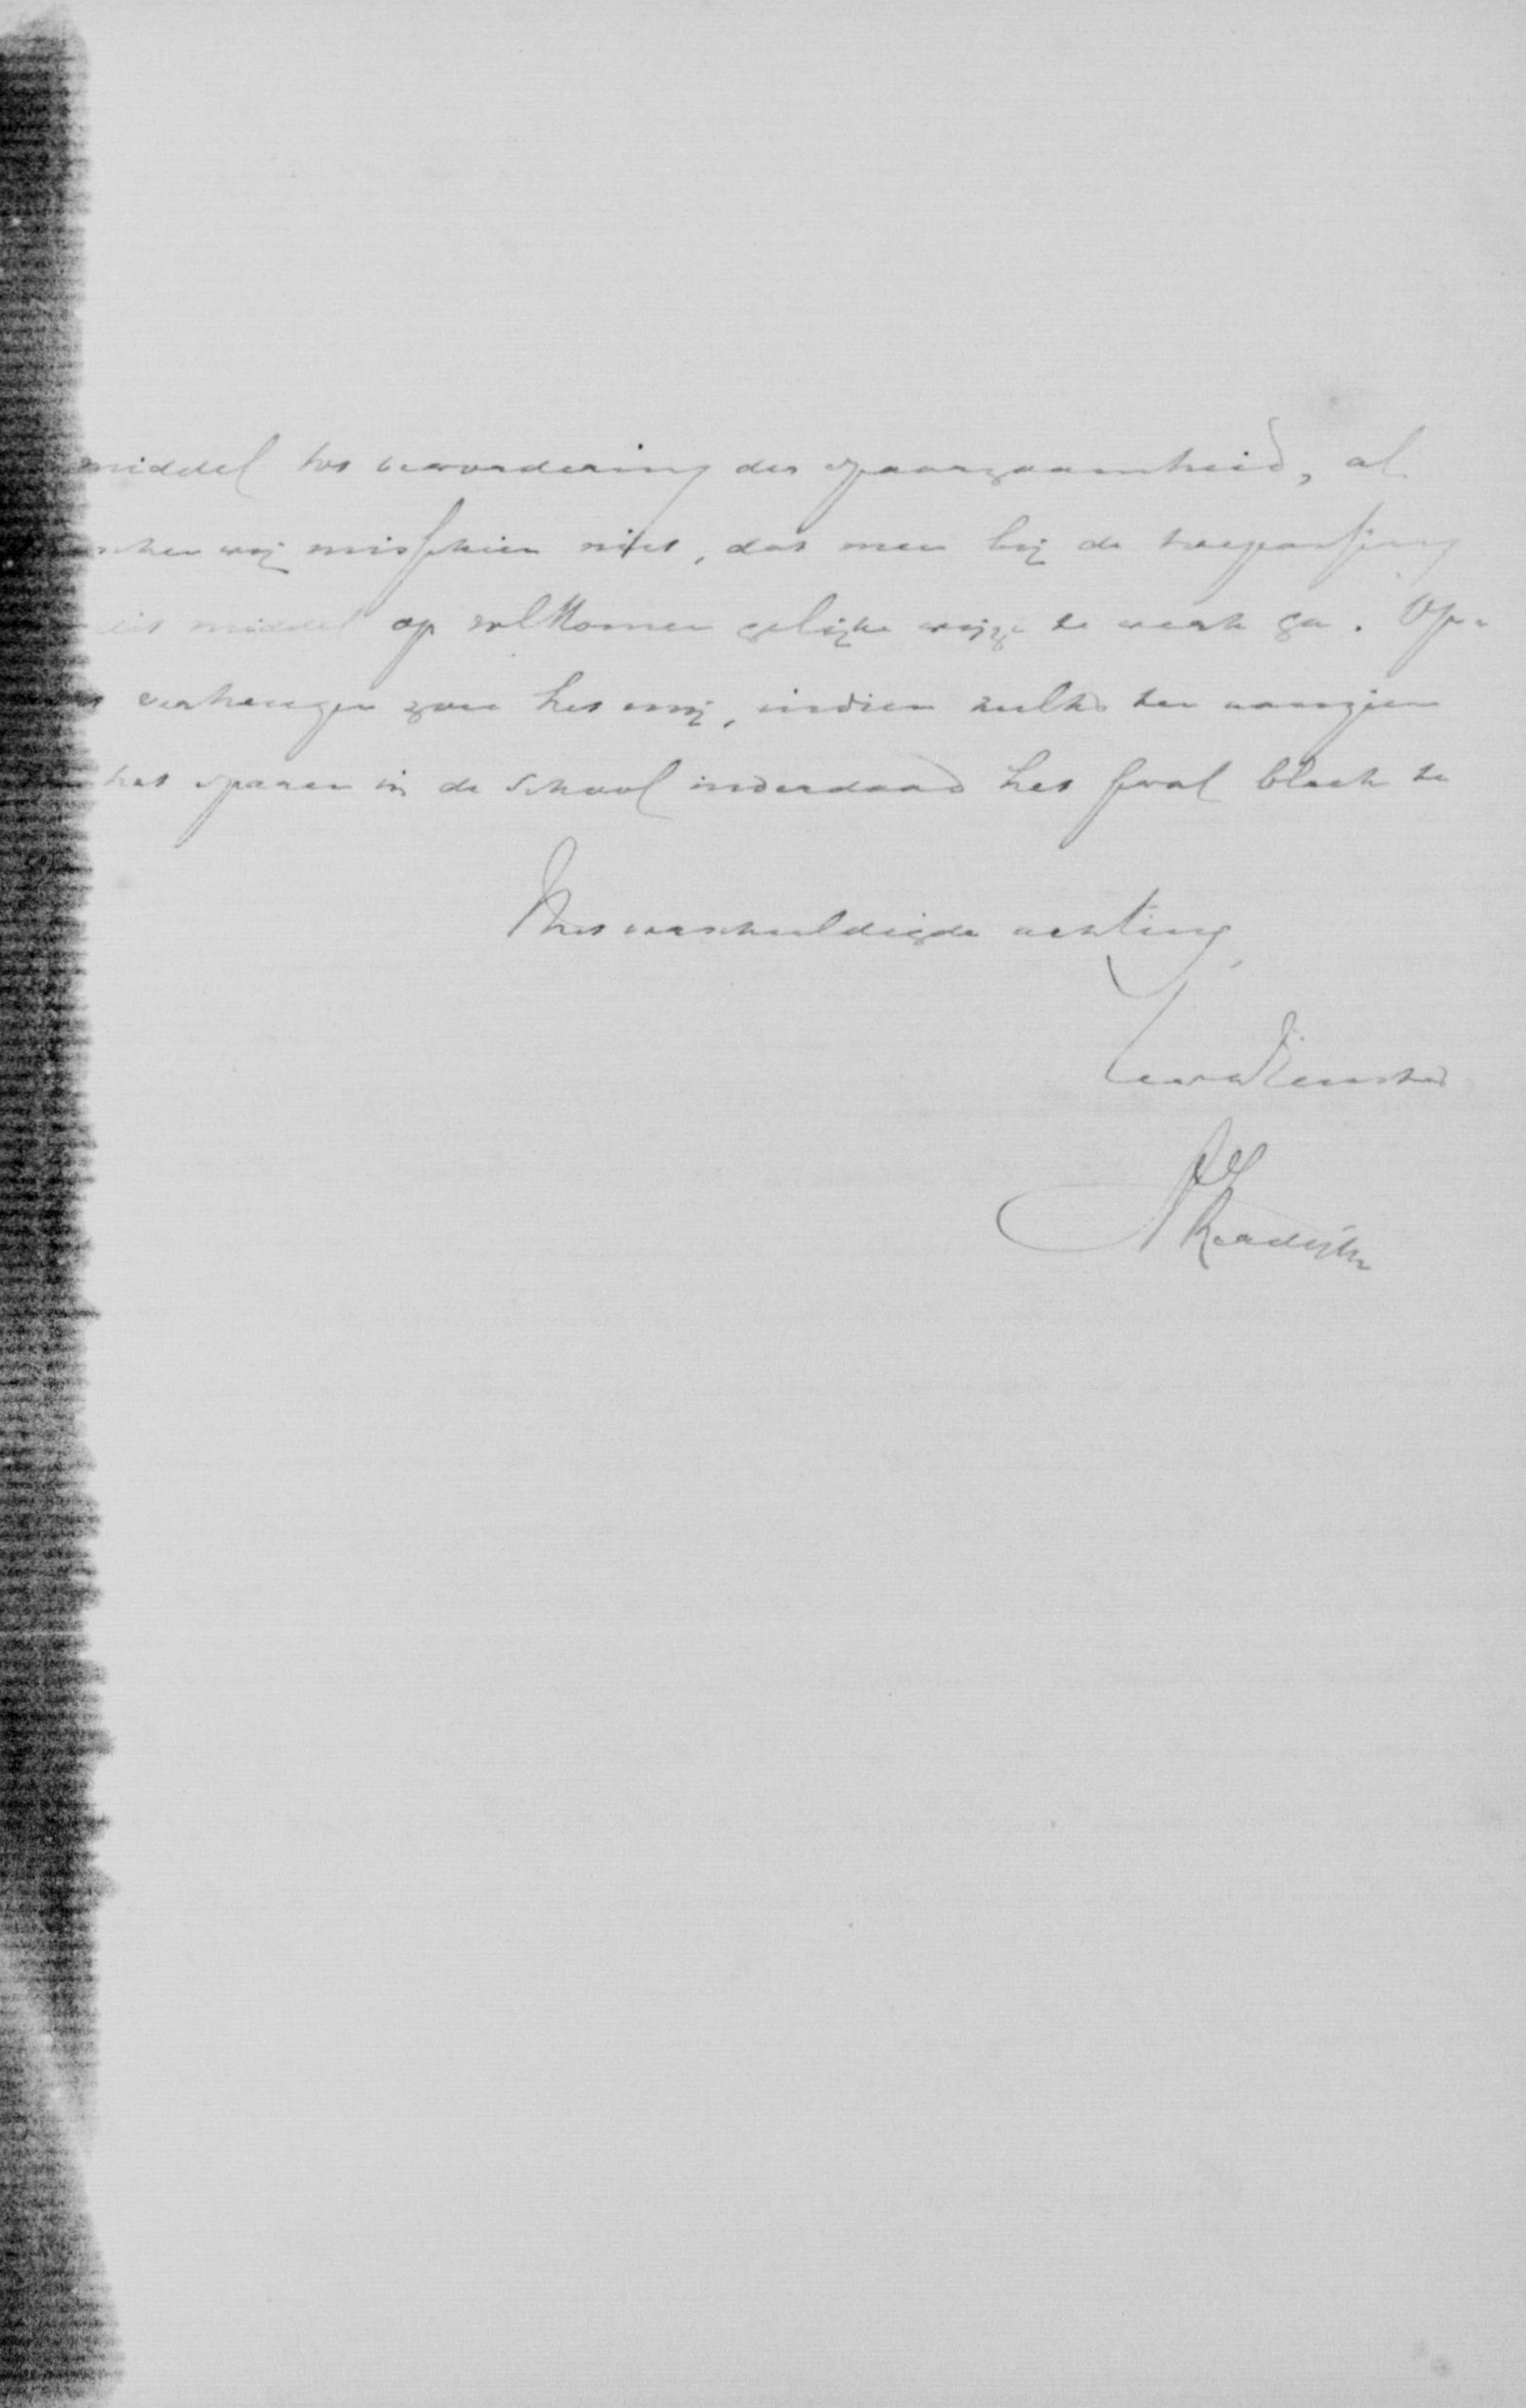 middel tot bevordering der spaarzaamheid, al
wij misschien niet, dat men bij de toepassing
dit middel op volkomen gelijke wijze te werk ga. Op-
verheugen zou het mij, indien zulks ten aanzien
het sparen in de School inderdaad het geval bleek te
Met verschuldigde achting,
Uw Dienaar
Kerdijk